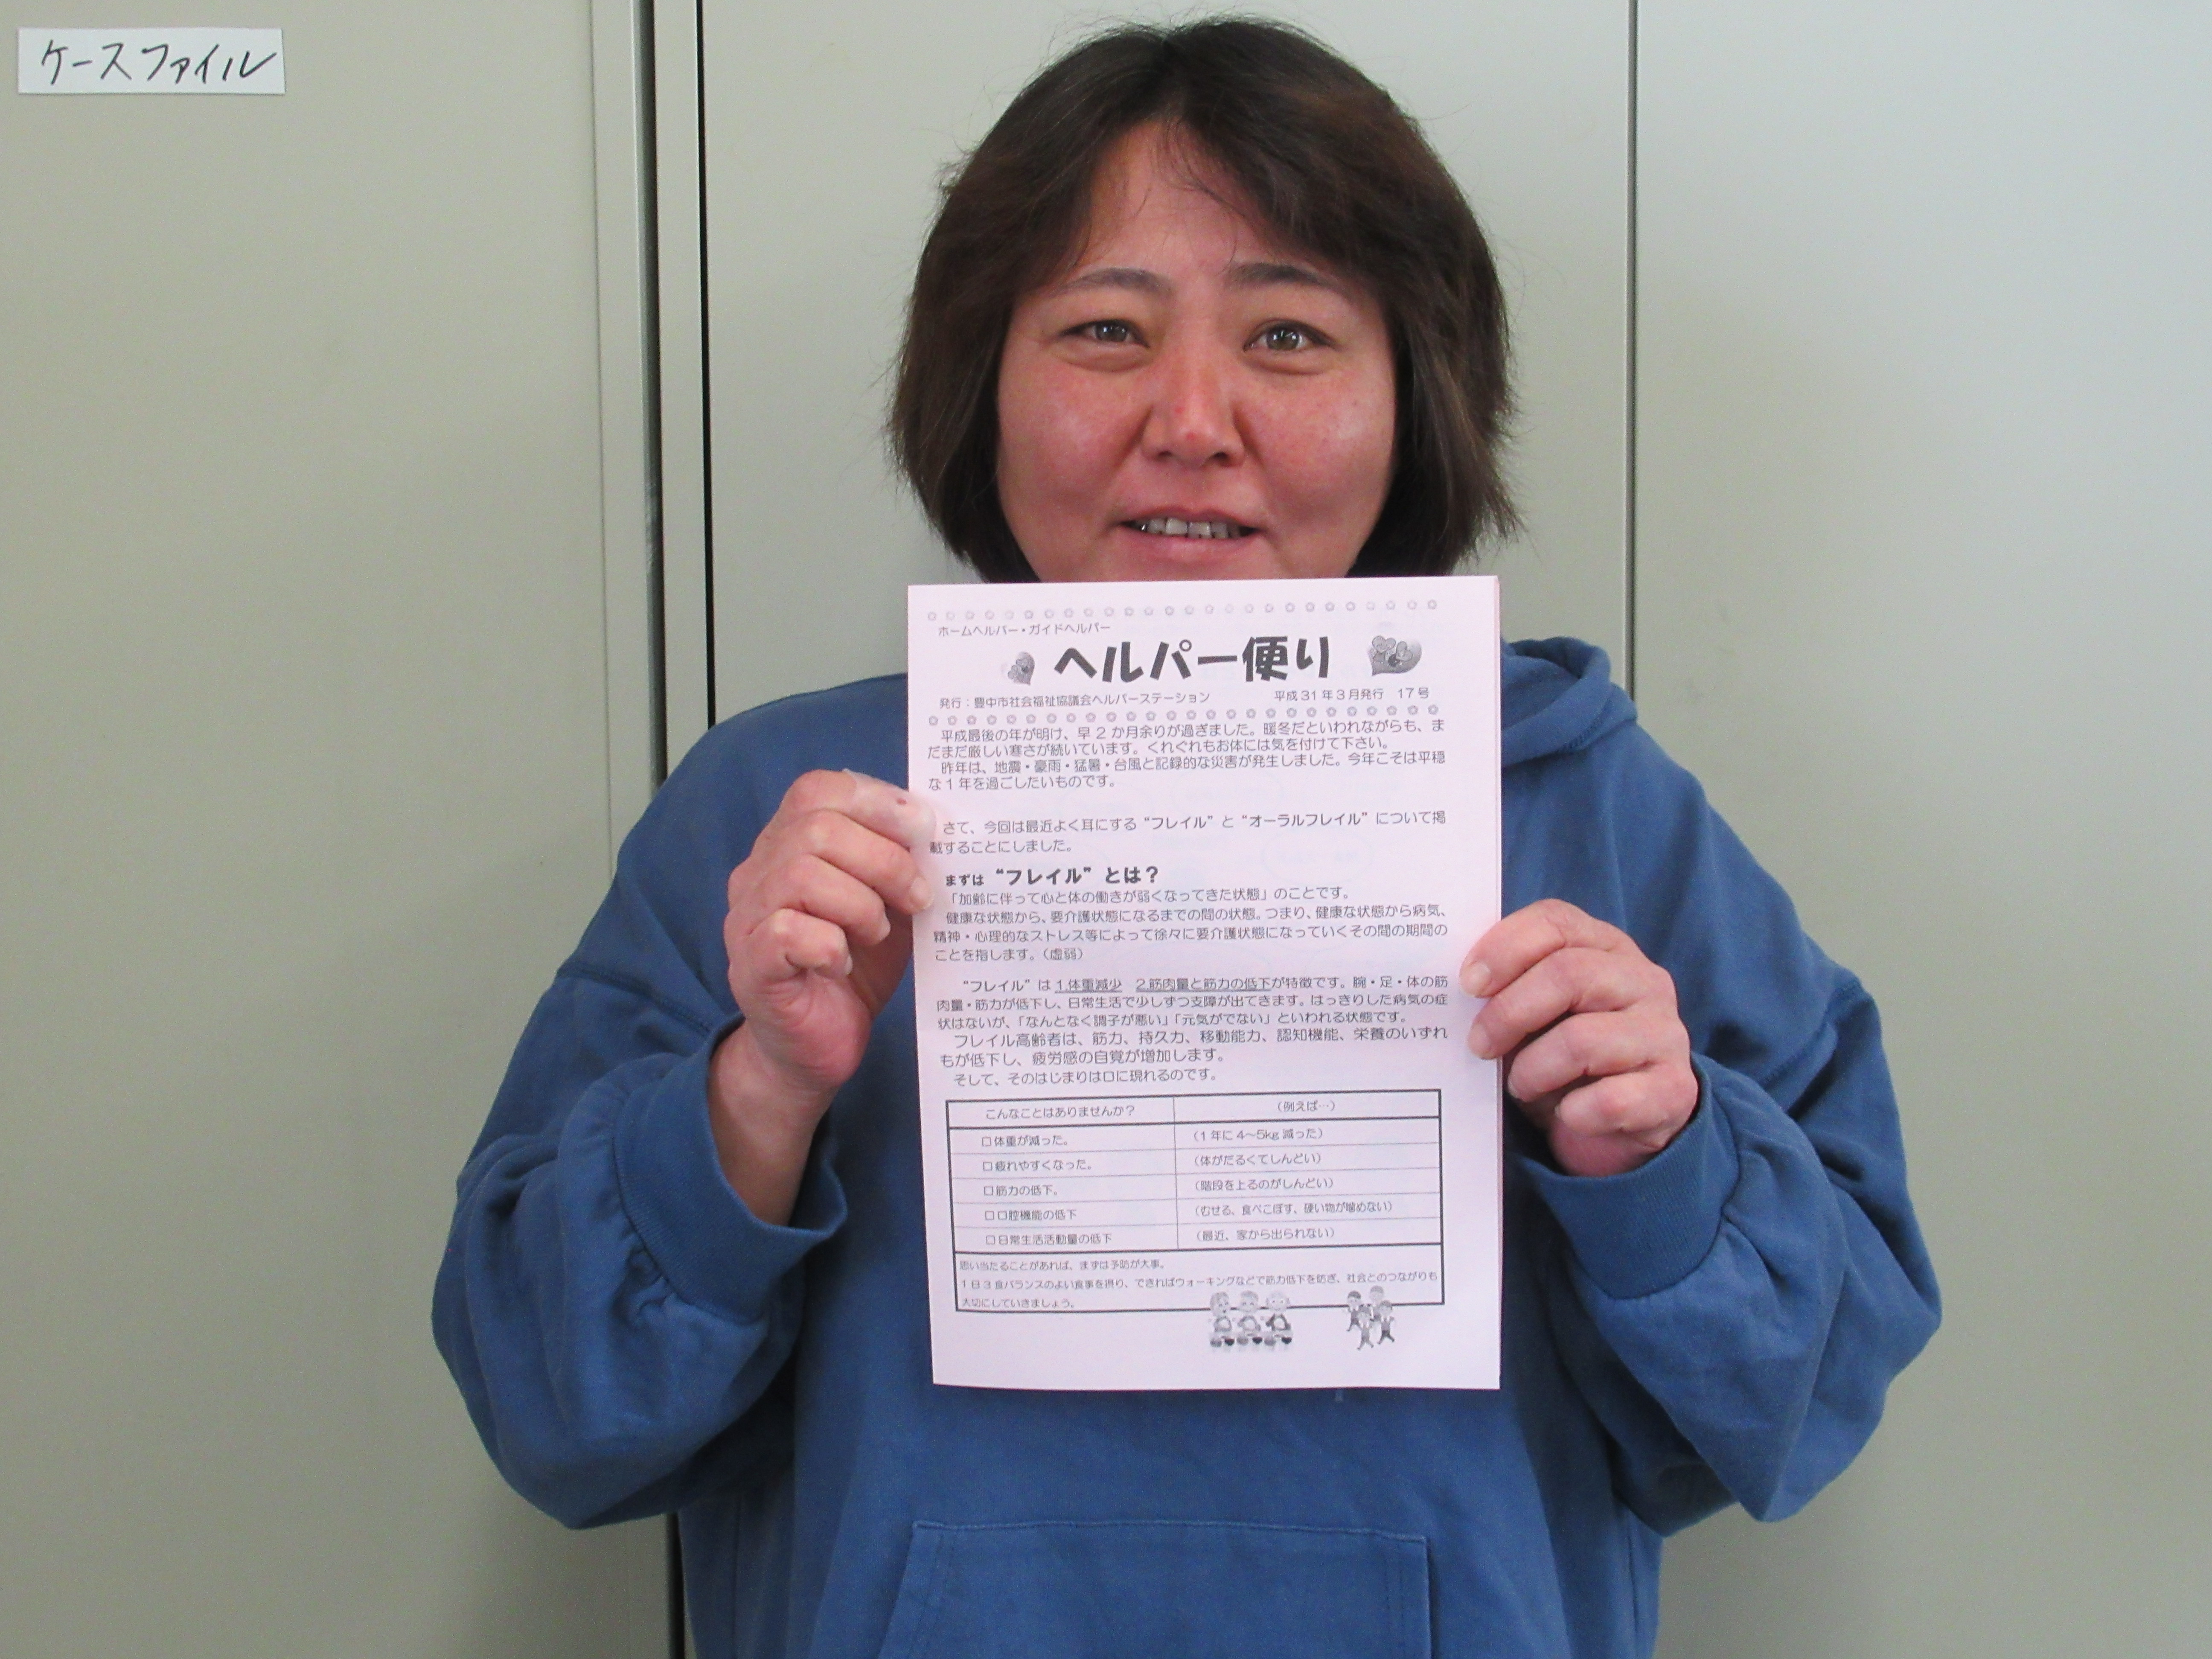 ケースファイル
ホームヘルパー・ガイドヘルパー
ヘルパー便り
発行：豊中市社会福祉協議会ヘルパーステーション 平成31年3月発行 17号
平成最後の年が明け、早2か月余りが過ぎました。暖冬だといわれながらも、ま
だまだ厳しい寒さが続いています。くれぐれもお体には気を付けて下さい。
昨年は、地震・豪雨・猛暑・台風と記録的な災害が発生しました。今年こそは平穏
な1年を過ごしたいものです。
さて、今回は最近よく耳にする“フレイル”と“オーラルフレイル”について掲
載することにしました。
まずは“フレイル”とは？
「加齢に伴って心と体の働きが弱くなってきた状態」のことです。
健康な状態から、要介護状態になるまでの間の状態。つまり、健康な状態から病気、
精神・心理的なストレス等によって徐々に要介護状態になっていくその間の期間の
ことを指します。（虚弱）
“フレイル”は 1.体重減少 2.筋肉量と筋力の低下が特徴です。腕・足・体の筋
肉量・筋力が低下し、日常生活で少しずつ支障が出てきます。はっきりした病気の症
状はないが、「なんとなく調子が悪い」「元気がでない」といわれる状態です。
フレイル高齢者は、筋力、持久力、移動能力、認知機能、栄養のいずれ
もが低下し、疲労感の自覚が増加します。
そして、そのはじまりは口に現れるのです。
こんなことはありませんか？ （例えば…）
□体重が減った。 （1年に4～5kg減った）
□疲れやすくなった。 （体がだるくてしんどい）
□筋力の低下。 （階段を上るのがしんどい）
□口腔機能の低下 （むせる、食べこぼす、硬い物が噛めない）
□日常生活活動量の低下 （最近、家から出られない）
思い当たることがあれば、まずは予防が大事。
1日3食バランスのよい食事を摂り、できればウォーキングなどで筋力低下を防ぎ、社会とのつながりも
大切にしていきましょう。